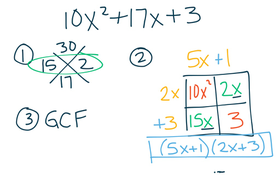 10x²+17x+3
① 30
15 2
17
② 5x+1
2x 10x² 2x
+3 15x 3
③ GCF
(5x+1)(2x+3)